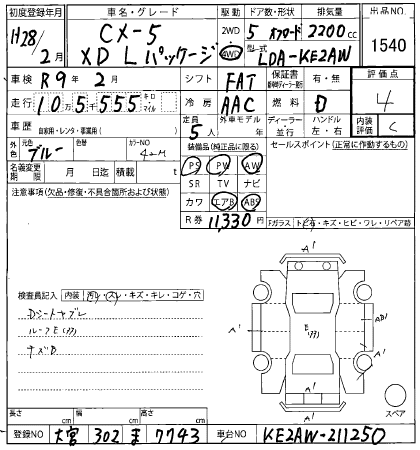 初度登録年月 車名・グレード 駆動 ドア数・形状 排気量 出品NO
H28/2月 CX-5 XD Lパッケージ 2WD 4WD 5 2200cc 1540
型式 LDA-KE2AW
車検 R9年2月 シフト FAT 保証書 有・無 評価点
走行 10万5千555 キロ・マイル 冷房 AAC 燃料 D 4
車歴 自家用・レンタ・事業用( ) 定員 5人 外車モデル 年 ディーラー・並行 ハンドル 左・右 内装評価 C
外色 元色 ブルー 色替 カラーNO 42M
装備品(純正品に限る) セールスポイント(正常に作動するもの)
名義変更期限 月 日迄 積載 t
PS PW AW
SR TV ナビ
カワ エアB ABS
R券 11,330円
注意事項(欠品・修復・不具合箇所および状態)
Fガラス トビ石・キズ・ヒビ・ワレ・リペア跡
検査員記入 内装 汚レ・スレ・キズ・キレ・コゲ・穴
Dシートヤブレ
ルーフE(ﾏﾀ)
キズB
A' A' A' A' A' AB1 E
スペア
長さ cm 幅 cm 高さ cm
登録NO 大宮 302 ま 7743 車台NO KE2AW-211250